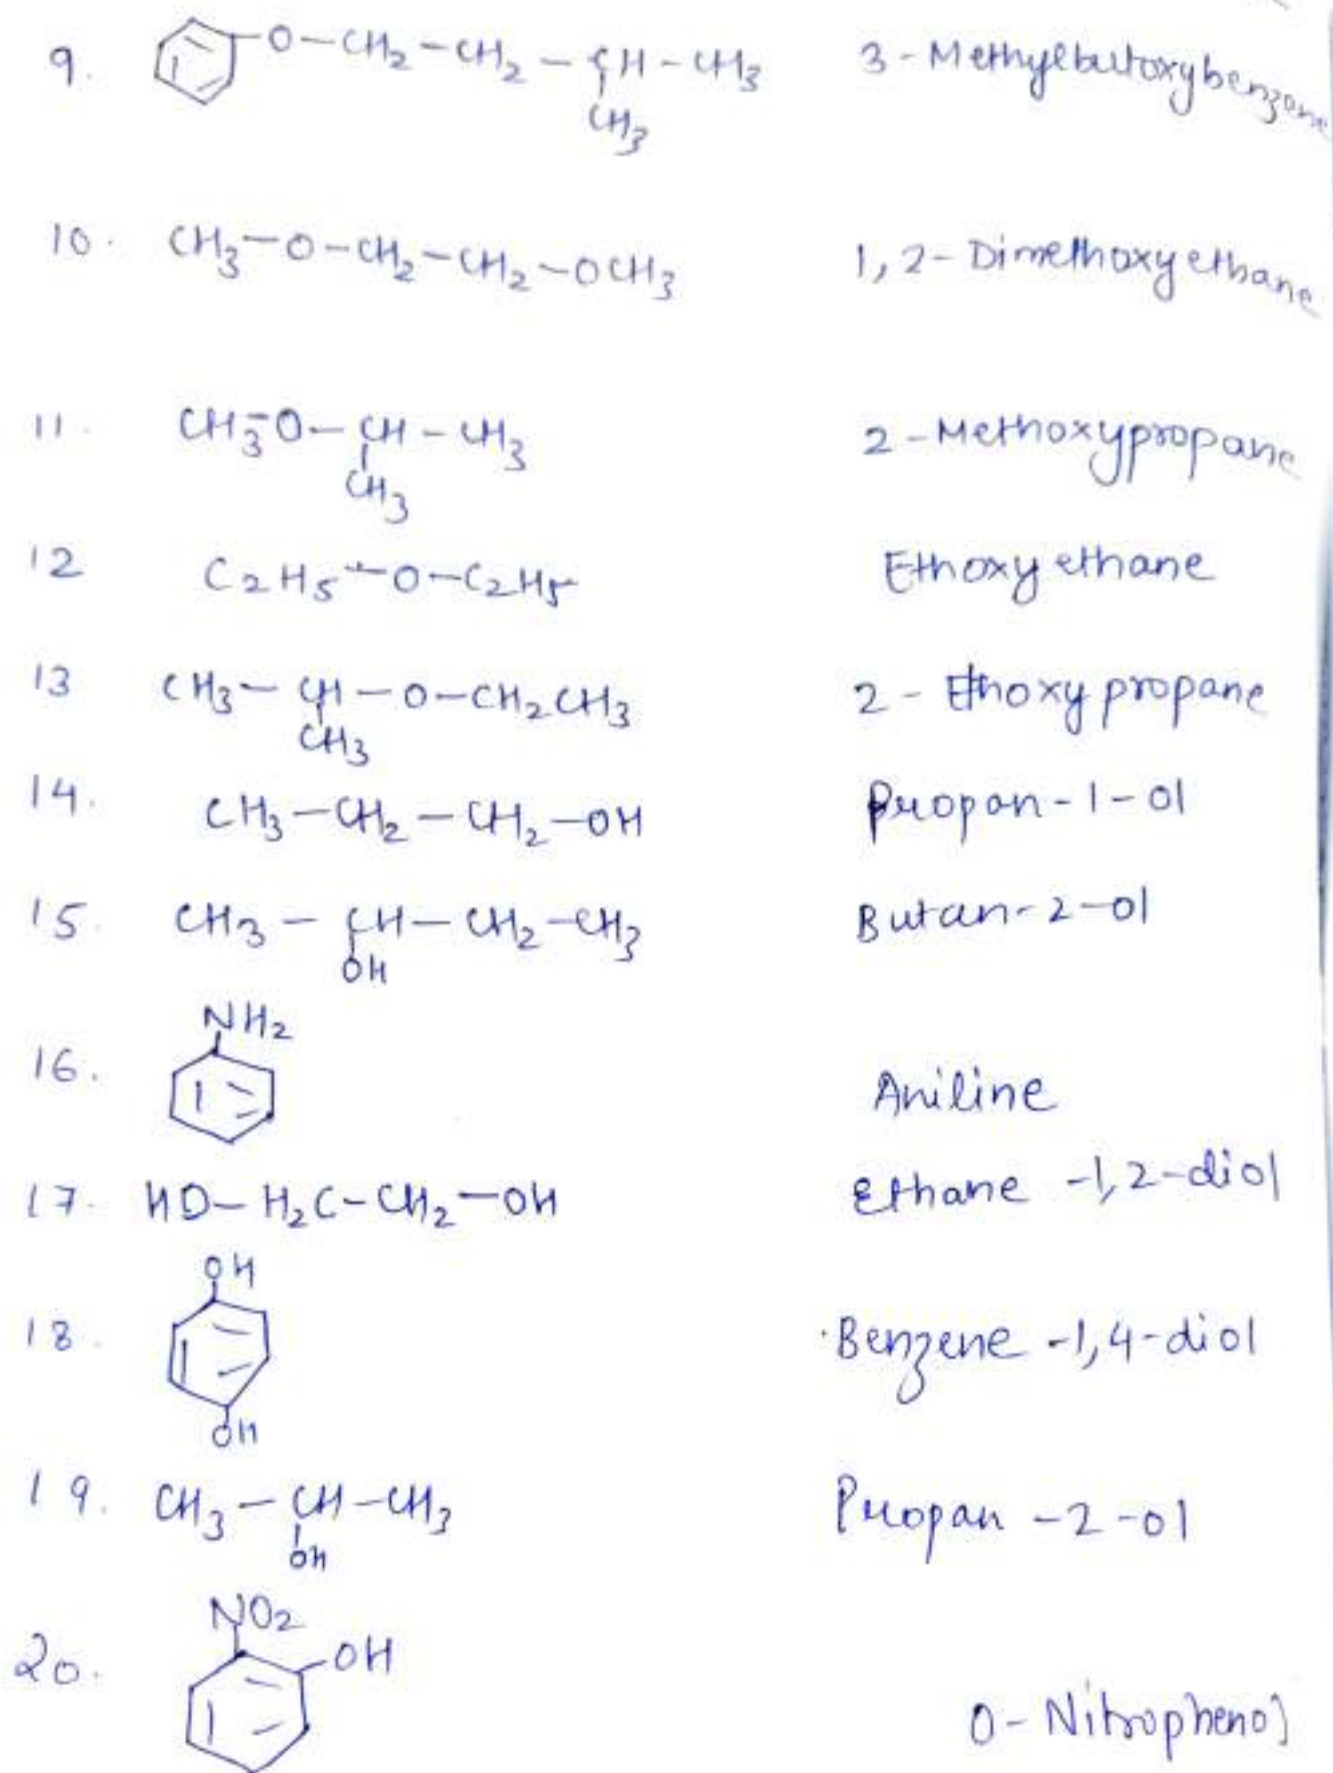 9. O-CH2-CH2-CH-CH3 3-Methylbutoxybenzene
CH3
10. CH3-O-CH2-CH2-OCH3 1,2-Dimethoxyethane
11. CH3-O-CH-CH3 2-Methoxypropane
CH3
12 C2H5-O-C2H5 Ethoxyethane
13 CH3-CH-O-CH2CH3 2-Ethoxypropane
CH3
14. CH3-CH2-CH2-OH Propan-1-ol
15. CH3-CH-CH2-CH3 Butan-2-ol
OH
NH2
16. Aniline
17. HO-H2C-CH2-OH Ethane-1,2-diol
OH
18. Benzene-1,4-diol
OH
19. CH3-CH-CH3 Propan-2-ol
OH
NO2
20. OH O-Nitrophenol